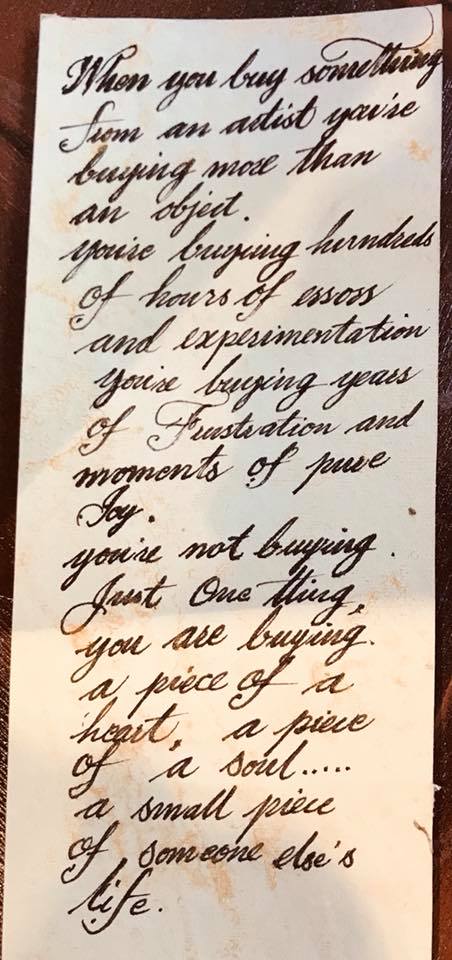 When you buy something
from an artist you're
buying more than
an object.
you're buying hundreds
of hours of errors
and experimentation
you're buying years
of Frustration and
moments of pure
Joy.
you're not buying.
Just One thing,
you are buying.
a piece of a
heart, a piece
of a soul.....
a small piece
of someone else's
life.